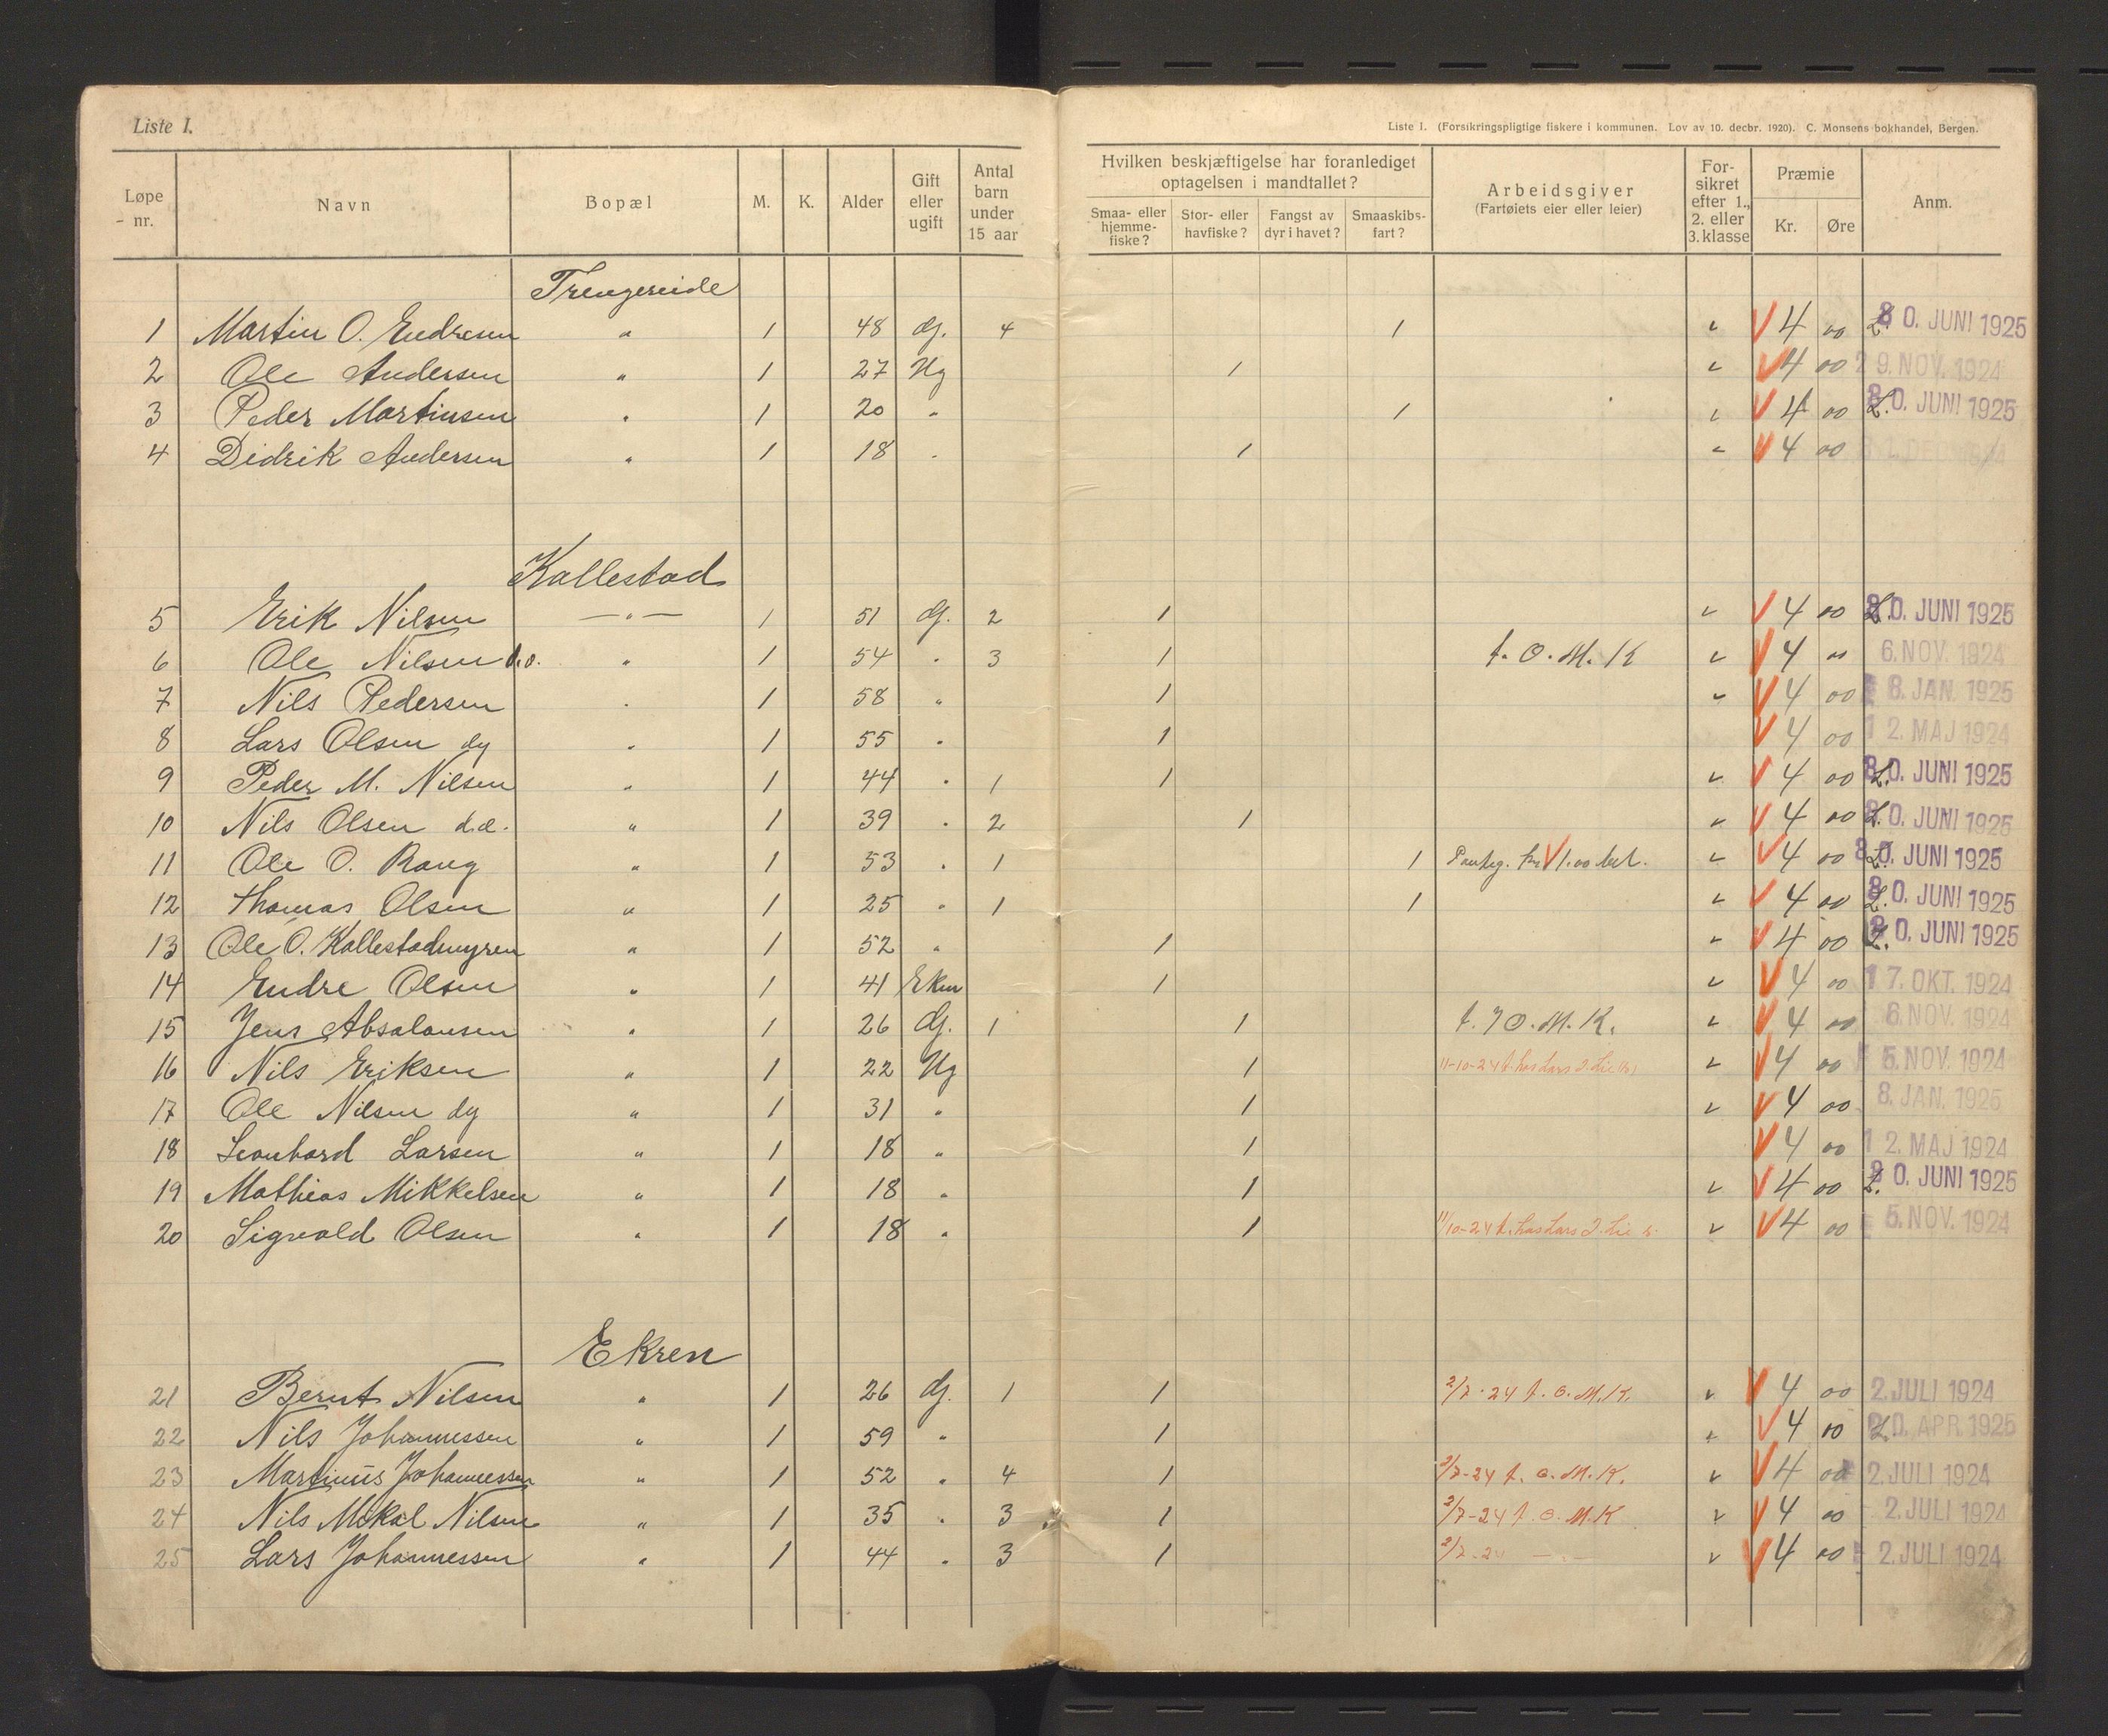 Liste I.
Liste I. (Forsikringspligtige fiskere i kommunen. Lov av 10. decbr. 1920). C. Monsens bokhandel, Bergen.
Løpe-nr. Navn Bopæl M. K. Alder Gift eller ugift Antal barn under 15 aar Hvilken beskjæftigelse har foranlediget optagelsen i mandtallet? Smaa- eller hjemmefiske? Stor- eller havfiske? Fangst av dyr i havet? Smaaskibsfart? Arbeidsgiver (Fartøiets eier eller leier) Forsikret efter 1., 2. eller 3. klasse Præmie Kr. Øre Anm.
Trengereide
1 Martin O. Endresen " 1 48 G. 4 1 V 4 00 30. JUNI 1925
2 Ole Andersen " 1 27 Ug 1 V 4 00 29. NOV. 1924
3 Peder Martinsen " 1 20 " 1 V 4 00 30. JUNI 1925
4 Didrik Andersen " 1 18 " 1 V 4 00 DEC. 1924
Kallestad
5 Erik Nilsen — " — 1 51 G. 2 1 V 4 00 30. JUNI 1925
6 Ole Nilsen d.o. " 1 54 " 3 1 f. O. M. K V 4 " 6. NOV. 1924
7 Nils Pedersen " 1 58 " 1 V 4 00 8. JAN. 1925
8 Lars Olsen dy " 1 55 " 1 V 4 00 12. MAJ 1924
9 Peder M. Nilsen " 1 44 " 1 1 V 4 00 30. JUNI 1925
10 Nils Olsen d.e. " 1 39 " 2 1 V 4 00 30. JUNI 1925
11 Ole O. Raug " 1 53 " 1 1 V 1.00 V 4 00 30. JUNI 1925
12 Thomas Olsen " 1 25 " 1 1 V 4 00 30. JUNI 1925
13 Ole O. Kallestadmyren " 1 52 " 1 V 4 00 30. JUNI 1925
14 Endre Olsen " 1 41 Ekm 1 V 4 00 17. OKT. 1924
15 Jens Absalonsen " 1 26 G. 1 1 O. M. K. V 4 00 6. NOV. 1924
16 Nils Eriksen " 1 22 Ug 1 11-10-24 f. hos Lars J. Lie V 4 00 5. NOV. 1924
17 Ole Nilsen dy " 1 31 " 1 V 4 00 8. JAN. 1925
18 Leonhard Larsen " 1 18 " 1 V 4 00 12. MAJ 1924
19 Mathias Mikkelsen " 1 18 " 1 V 4 00 30. JUNI 1925
20 Sigvald Olsen " 1 18 " 1 11/10-24 f. hos Lars J. Lie V 4 00 5. NOV. 1924
Ekren
21 Bernt Nilsen " 1 26 G. 1 1 2/7-24 f. O. M. K. V 4 00 2. JULI 1924
22 Nils Johannessen " 1 59 " 1 V 4 00 20. APR. 1925
23 Martinus Johannessen " 1 52 " 4 1 2/7-24 f. O. M. K. V 4 00 2. JULI 1924
24 Nils Mikal Nilsen " 1 35 " 3 1 2/7-24 f. O. M. K V 4 00 2. JULI 1924
25 Lars Johannessen " 1 44 " 3 1 2/7-24 — " — V 4 00 2. JULI 1924